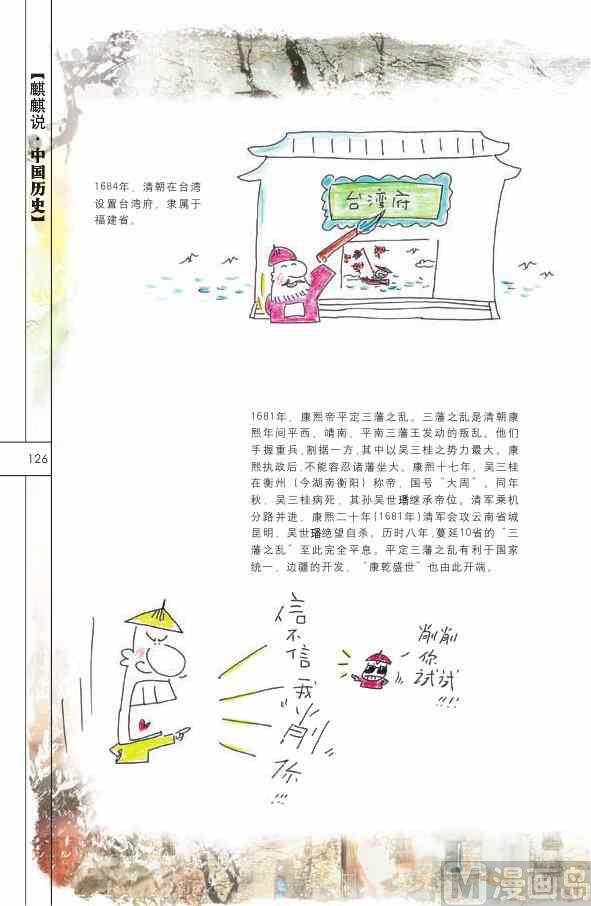 【麒麟说·中国历史】
126
1684年，清朝在台湾
设置台湾府，隶属于
福建省。
台湾府
1681年，康熙帝平定三藩之乱。三藩之乱是清朝康
熙年间平西、靖南、平南三藩王发动的叛乱。他们
手握重兵，割据一方，其中以吴三桂之势力最大。康
熙执政后，不能容忍诸藩坐大。康熙十七年，吴三桂
在衡州（今湖南衡阳）称帝，国号“大周”。同年
秋，吴三桂病死，其孙吴世璠继承帝位。清军乘机
分路并进，康熙二十年(1681年)清军会攻云南省城
昆明，吴世璠绝望自杀。历时八年，蔓延10省的“三
藩之乱”至此完全平息。平定三藩之乱有利于国家
统一、边疆的开发，“康乾盛世”也由此开端。
信不信我削你!!!
削削
你
试试
!!!
漫画岛